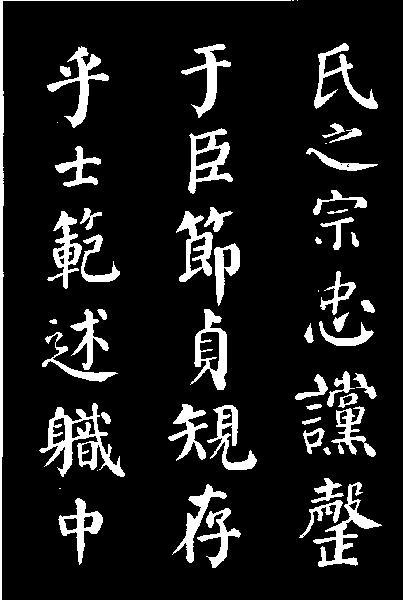 氏之宗忠讜罄
于臣節貞規存
乎士範述軄中